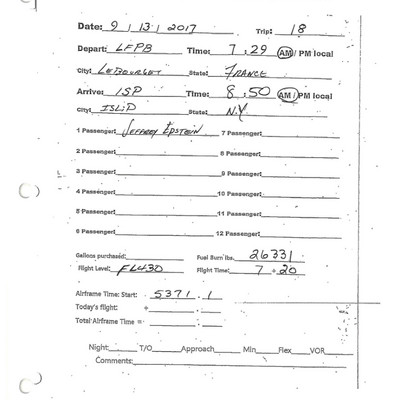 Date: 9 / 13 / 2017 Trip: 18
Depart: LFPB Time: 7 : 29 AM / PM local
City: LEBOURGET State: FRANCE
Arrive: ISP Time: 8 : 50 AM / PM local
City: ISLIP State: N.Y
1 Passenger: JEFFREY EPSTEIN 7 Passenger:
2 Passenger: 8 Passenger:
3 Passenger: 9 Passenger:
4 Passenger: 10 Passenger:
5 Passenger: 11 Passenger:
6 Passenger: 12 Passenger:
Gallons purchased: Fuel Burn lbs. 26331
Flight Level: FL430 Flight Time: 7 + 20
Airframe Time: Start: 5371 . 1
Today's flight: + .
Total Airframe Time = .
Night: T/O Approach Min Flex VOR
Comments: